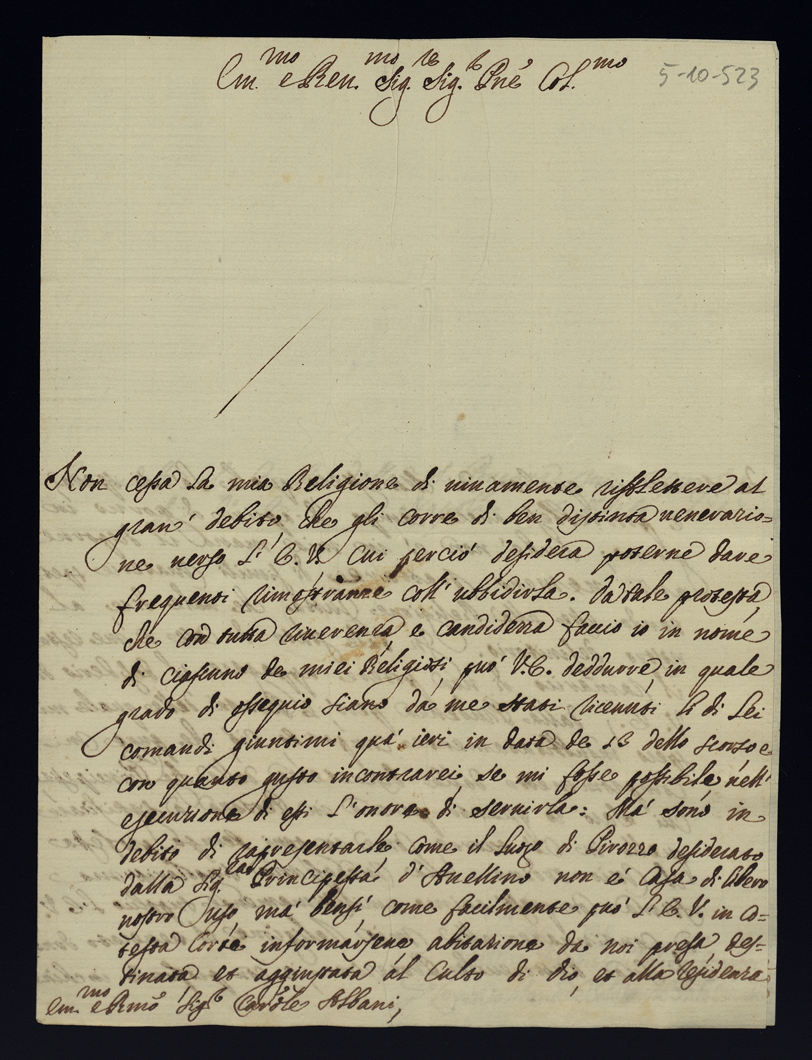 Em.mo e Ren.mo Sig.re Sig.r Pne Col.mo
5-10-523
Non cessa la mia Religione di uiuamente riflettere al
gran' debito, che gli corre di ben distinta uenerazio=
ne uerso l'E.V. cui perciò desidera poterne dare
frequenti rimostranze coll'ubbidirla. Da tale protesta,
che con tutta riuerenza e candidezza faccio io in nome
di ciascuno de miei Religiosi, può V.E. deddurre, in quale
grado di ossequio siano da me stati riceuuti li di Lei
comandi giuntimi quà ieri in data de 13 dello scorso e
con quanto gusto incontrarei se mi fosse possibile nell'
esecuzione di essi l'onore di seruirla: Mà sono in
debito di rapresentarle come il luogo di Pirozzo desiderato
dalla Sig. Principessa d'Auellino non è Casa di libero
nostro uso mà bensì, come facilmente può l'E.V. in co=
testa Corte informarsene abitazione da noi presa des=
tinata et aggiustata al Culto di Dio, et alla residenza
Em.mo e Rmo Sig.r Car.le Albani,